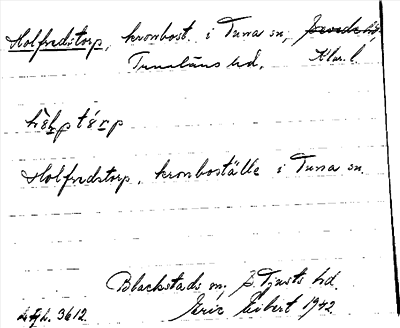 Holfredstorp, kronobost. i Tuna sn,
Tunaläns hd, Klm. l.
hòlptérp
Holfredstorp, kronoboställe i Tuna sn.
Blackstads sn, S. Tjusts hd.
Eric Eibert 1942